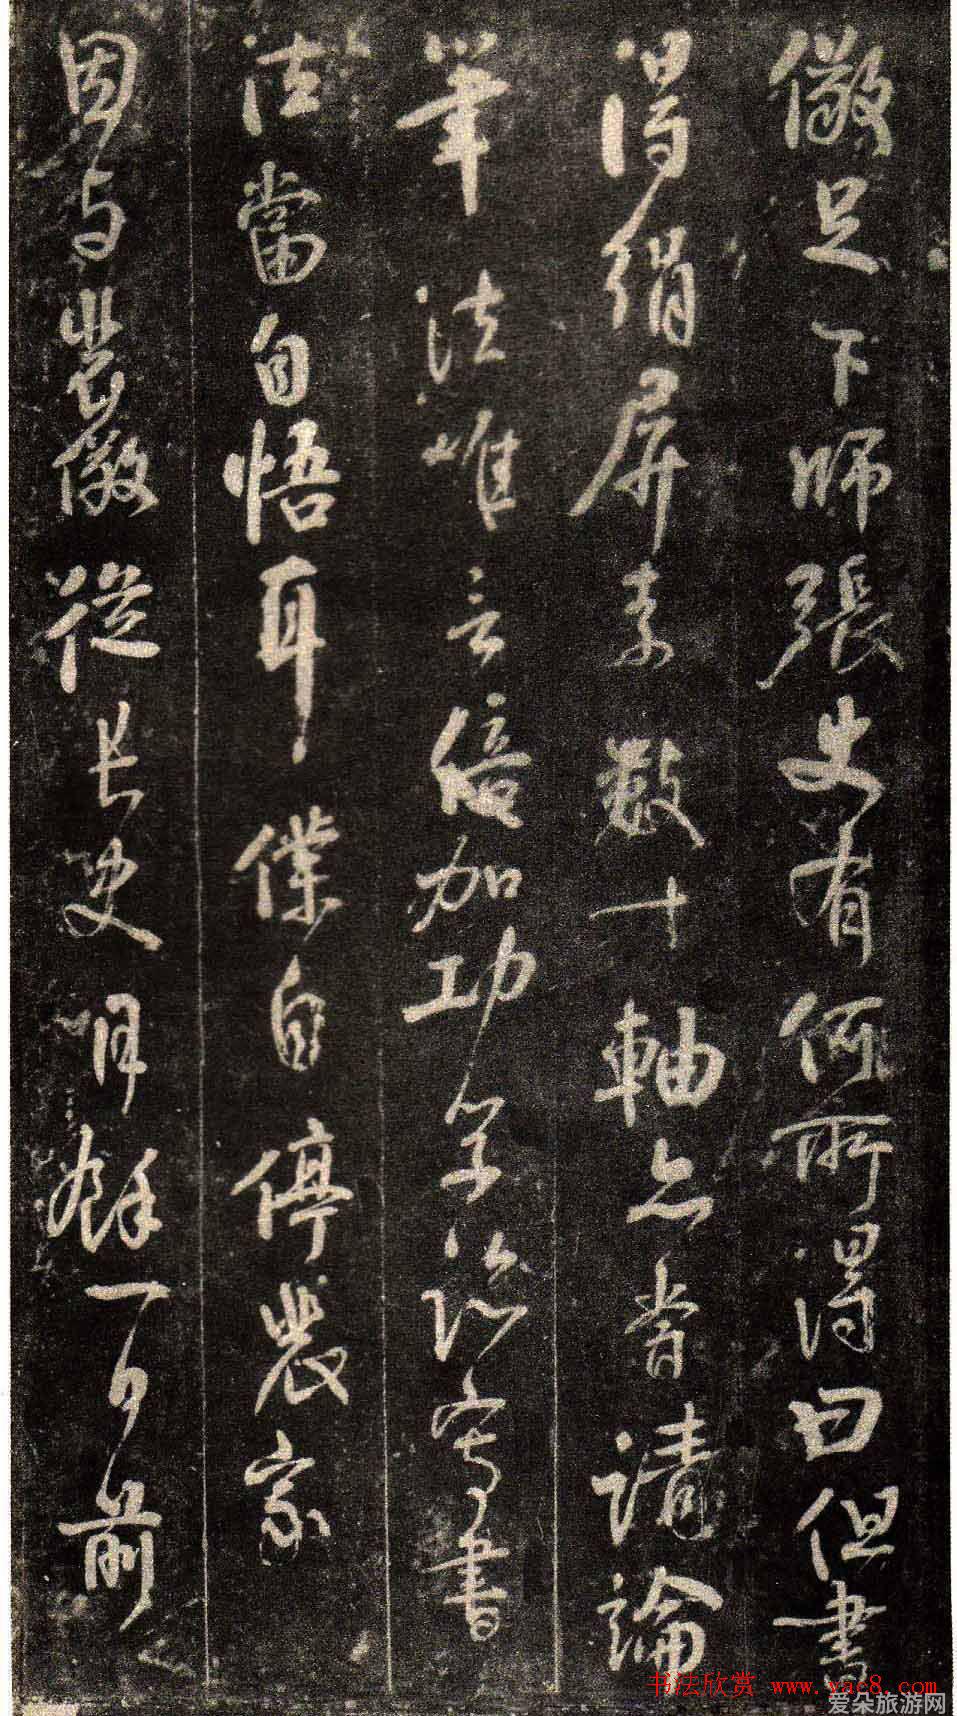 儆足下師張史有何所得曰但書
得絹屏素數十軸亦嘗請論
筆法惟言倍加功學臨寫書
法當自悟耳僕自停裴家
因与裴儆從長史月餘一日前
书法欣赏 www.yac8.com
爱朵旅游网